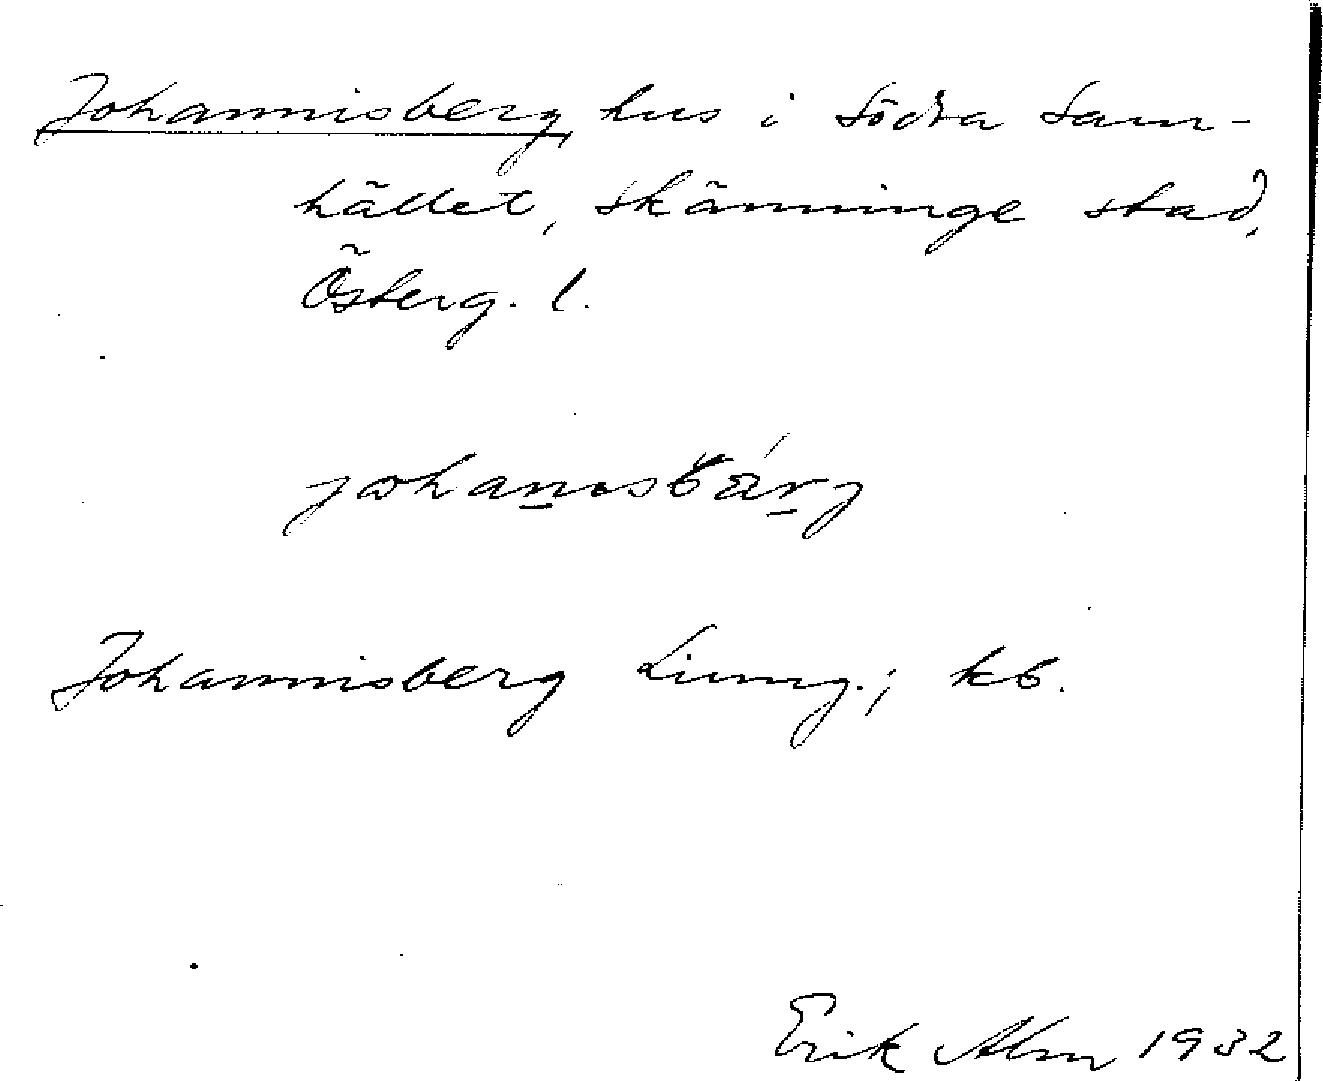 Johannisberg hus i Södra Sam-
hället, Skänninge stad,
Österg. l.
Johannisberg Ljung.; kb.
Erik Alm 1932